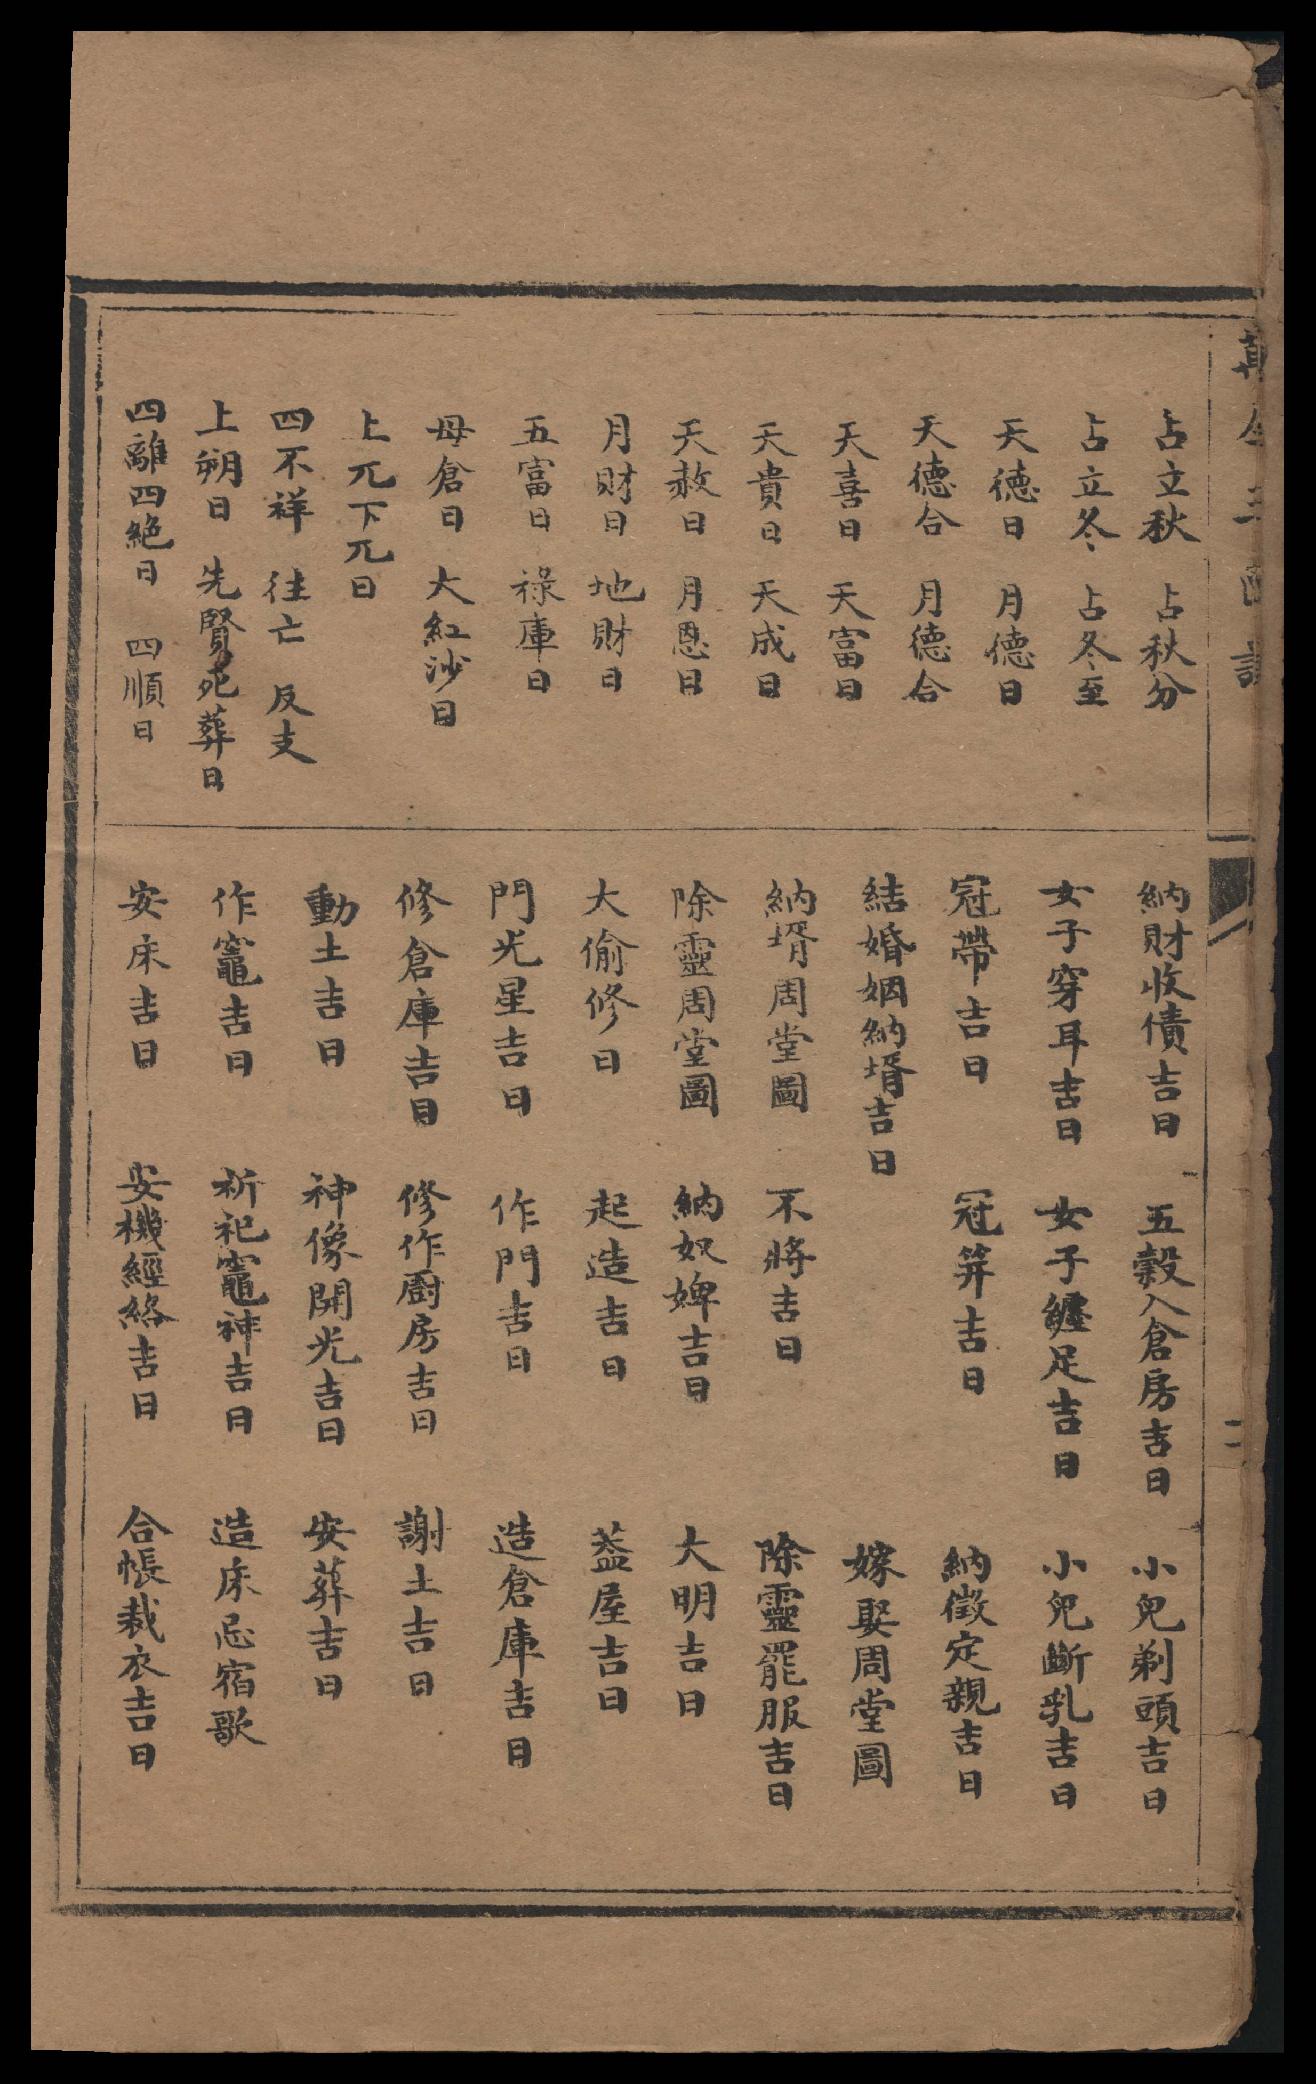 占立秋 占秋分
占立冬 占冬至
天德日 月德日
天德合 月德合
天喜日 天富日
天貴日 天成日
天赦日 月恩日
月財日 地財日
五富日 祿庫日
母倉日 大紅沙日
上兀下兀日
四不祥 往亡 反支
上朔日 先賢死葬日
四離四絕日 四順日
納財收債吉日 五穀入倉房吉日 小兒剃頭吉日
女子穿耳吉日 女子纏足吉日 小兒斷乳吉日
冠帶吉日 冠笄吉日 納徵定親吉日
結婚姻納壻吉日 嫁娶周堂圖
納壻周堂圖 不將吉日 除靈罷服吉日
除靈周堂圖 納奴婢吉日 大明吉日
大偷修日 起造吉日 蓋屋吉日
門光星吉日 作門吉日 造倉庫吉日
修倉庫吉日 修作廚房吉日 謝土吉日
動土吉日 神像開光吉日 安葬吉日
作竈吉日 祈祀竈神吉日 造床忌宿歌
安床吉日 安機經絡吉日 合帳裁衣吉日